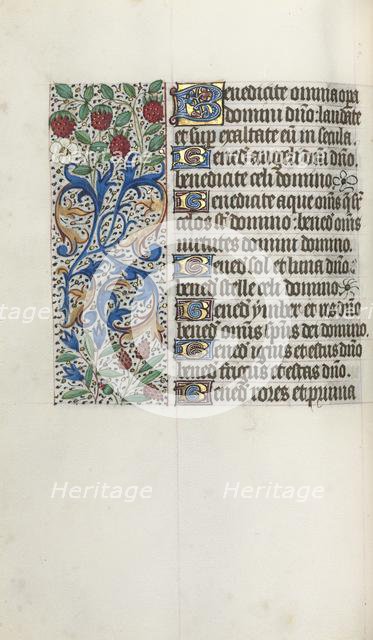 Benedicite omnia opa
domini dño: laudate
et sup exaltate eū in secula
Bened angeli dñi dño
benedicite celi domino
Benedicite aque om̄s q̄ sr̄
celos st̄ domino: bened om̄s
uirtutes domini domino
Bened sol et luna dño
bened stelle celi domino
Bened ymber et ros dño
bened om̄s sp̄us dei domino
Bened ignis et estus dño
bened frigus et estas dño
Bened rores et pruina
Heritage Heritage Heritage
Heritage Heritage Heritage